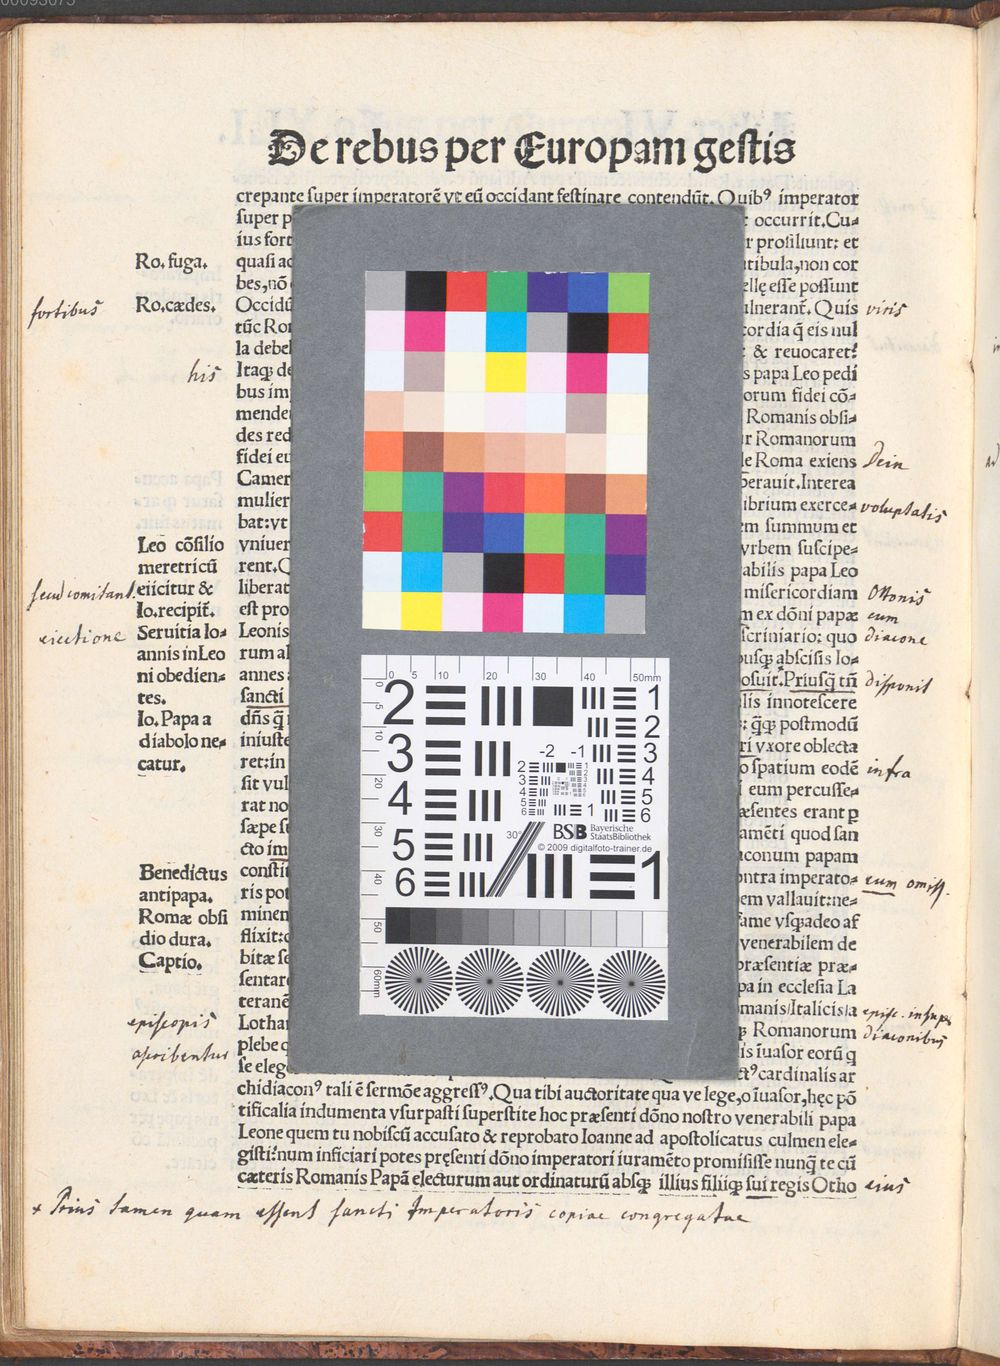 00093075
De rebus per Europam gestis
crepante super imperatorē vt eū occidant festinare contendūt. Quibꝰ imperator
super p occurrit. Cu⸗
ius fort r prosiliunt: et
Ro. fuga. quasi ac tibula, non cor
bes, nō ellę esse possunt
fortibus Ro. cædes. Occidū ulnerant. Quis viris
tūc Ro cordia q̄ eis nul
la debel : & reuocaret:
his Itaqꝫ de s papa Leo pedi
bus im orum fidei cō⸗
mende Romanis obsi⸗
des red r Romanorum
fidei eu le Roma exiens Dein
Camer perauit. Interea
mulier ibrium exerce⸗ voluptatis
bat: vt em summum et
Leo cōsilio vniuer vrbem suscipe⸗
meretricū rent. Q abilis papa Leo
eiicitur & liberat misericordiam Ottonis
Io. recipit. est pro m ex dōni papæ cum
eiectione Seruitia Io⸗ Leonis scriniario: quo diacone
annis in Leo rum al usqꝫ abscisis Io⸗
ni obedien⸗ annes osuit. Priusq̄ tn̄ disponit
tes. sancti lis innotescere
Io. Papa a dn̄s q̄ : q̄qꝫ postmodū
diabolo ne⸗ iniuste ri vxore oblecta
catur. ret: in o spatium eodē infra
sit vul i eum percusse⸗
rat no æsentes erant p
sæpe st amēti quod san
cto im iconum papam
Benedictus constit ontra imperato⸗ cum omiss.
antipapa. ris pot em vallauit: ne⸗
Romæ obsi minem ame vsqꝫadeo af
dio dura. flixit: venerabilem de
Captio. bitæ se præsentiæ præ⸗
sentare pa in ecclesia La
teranē manis Italicis a
episcopis Lothar ꝫ Romanorum diaconibus
ascribentur plebe q is iuasor eorū q
se eleg ctꝰ cardinalis ar
chidiaconꝰ tali ē sermōe aggressꝰ. Qua tibi auctoritate qua ve lege, o iuasor, hęc pō
tificalia indumenta vsurpasti superstite hoc præsenti dōno nostro venerabili papa
Leone quem tu nobiscū accusato & reprobato Ioanne ad apostolicatus culmen ele⸗
gisti: num inficiari potes pręsenti dōno imperatori iuramēto promisisse nunq̄ te cū
cæteris Romanis Papā electurum aut ordinaturū absqꝫ illius filiiqꝫ sui regis Otho eius
+ Prius tamen quam essent sancti Imperatoris copiae congregatae
0 5 10 20 30 50mm
0 5 10 20 30 40 50 60mm
2 1
2
3 -2 -1 3
4 4
5
6
5 30° BSB Bayerische
StaatsBibliothek
© 2009 digitalfoto-trainer.de
6 1